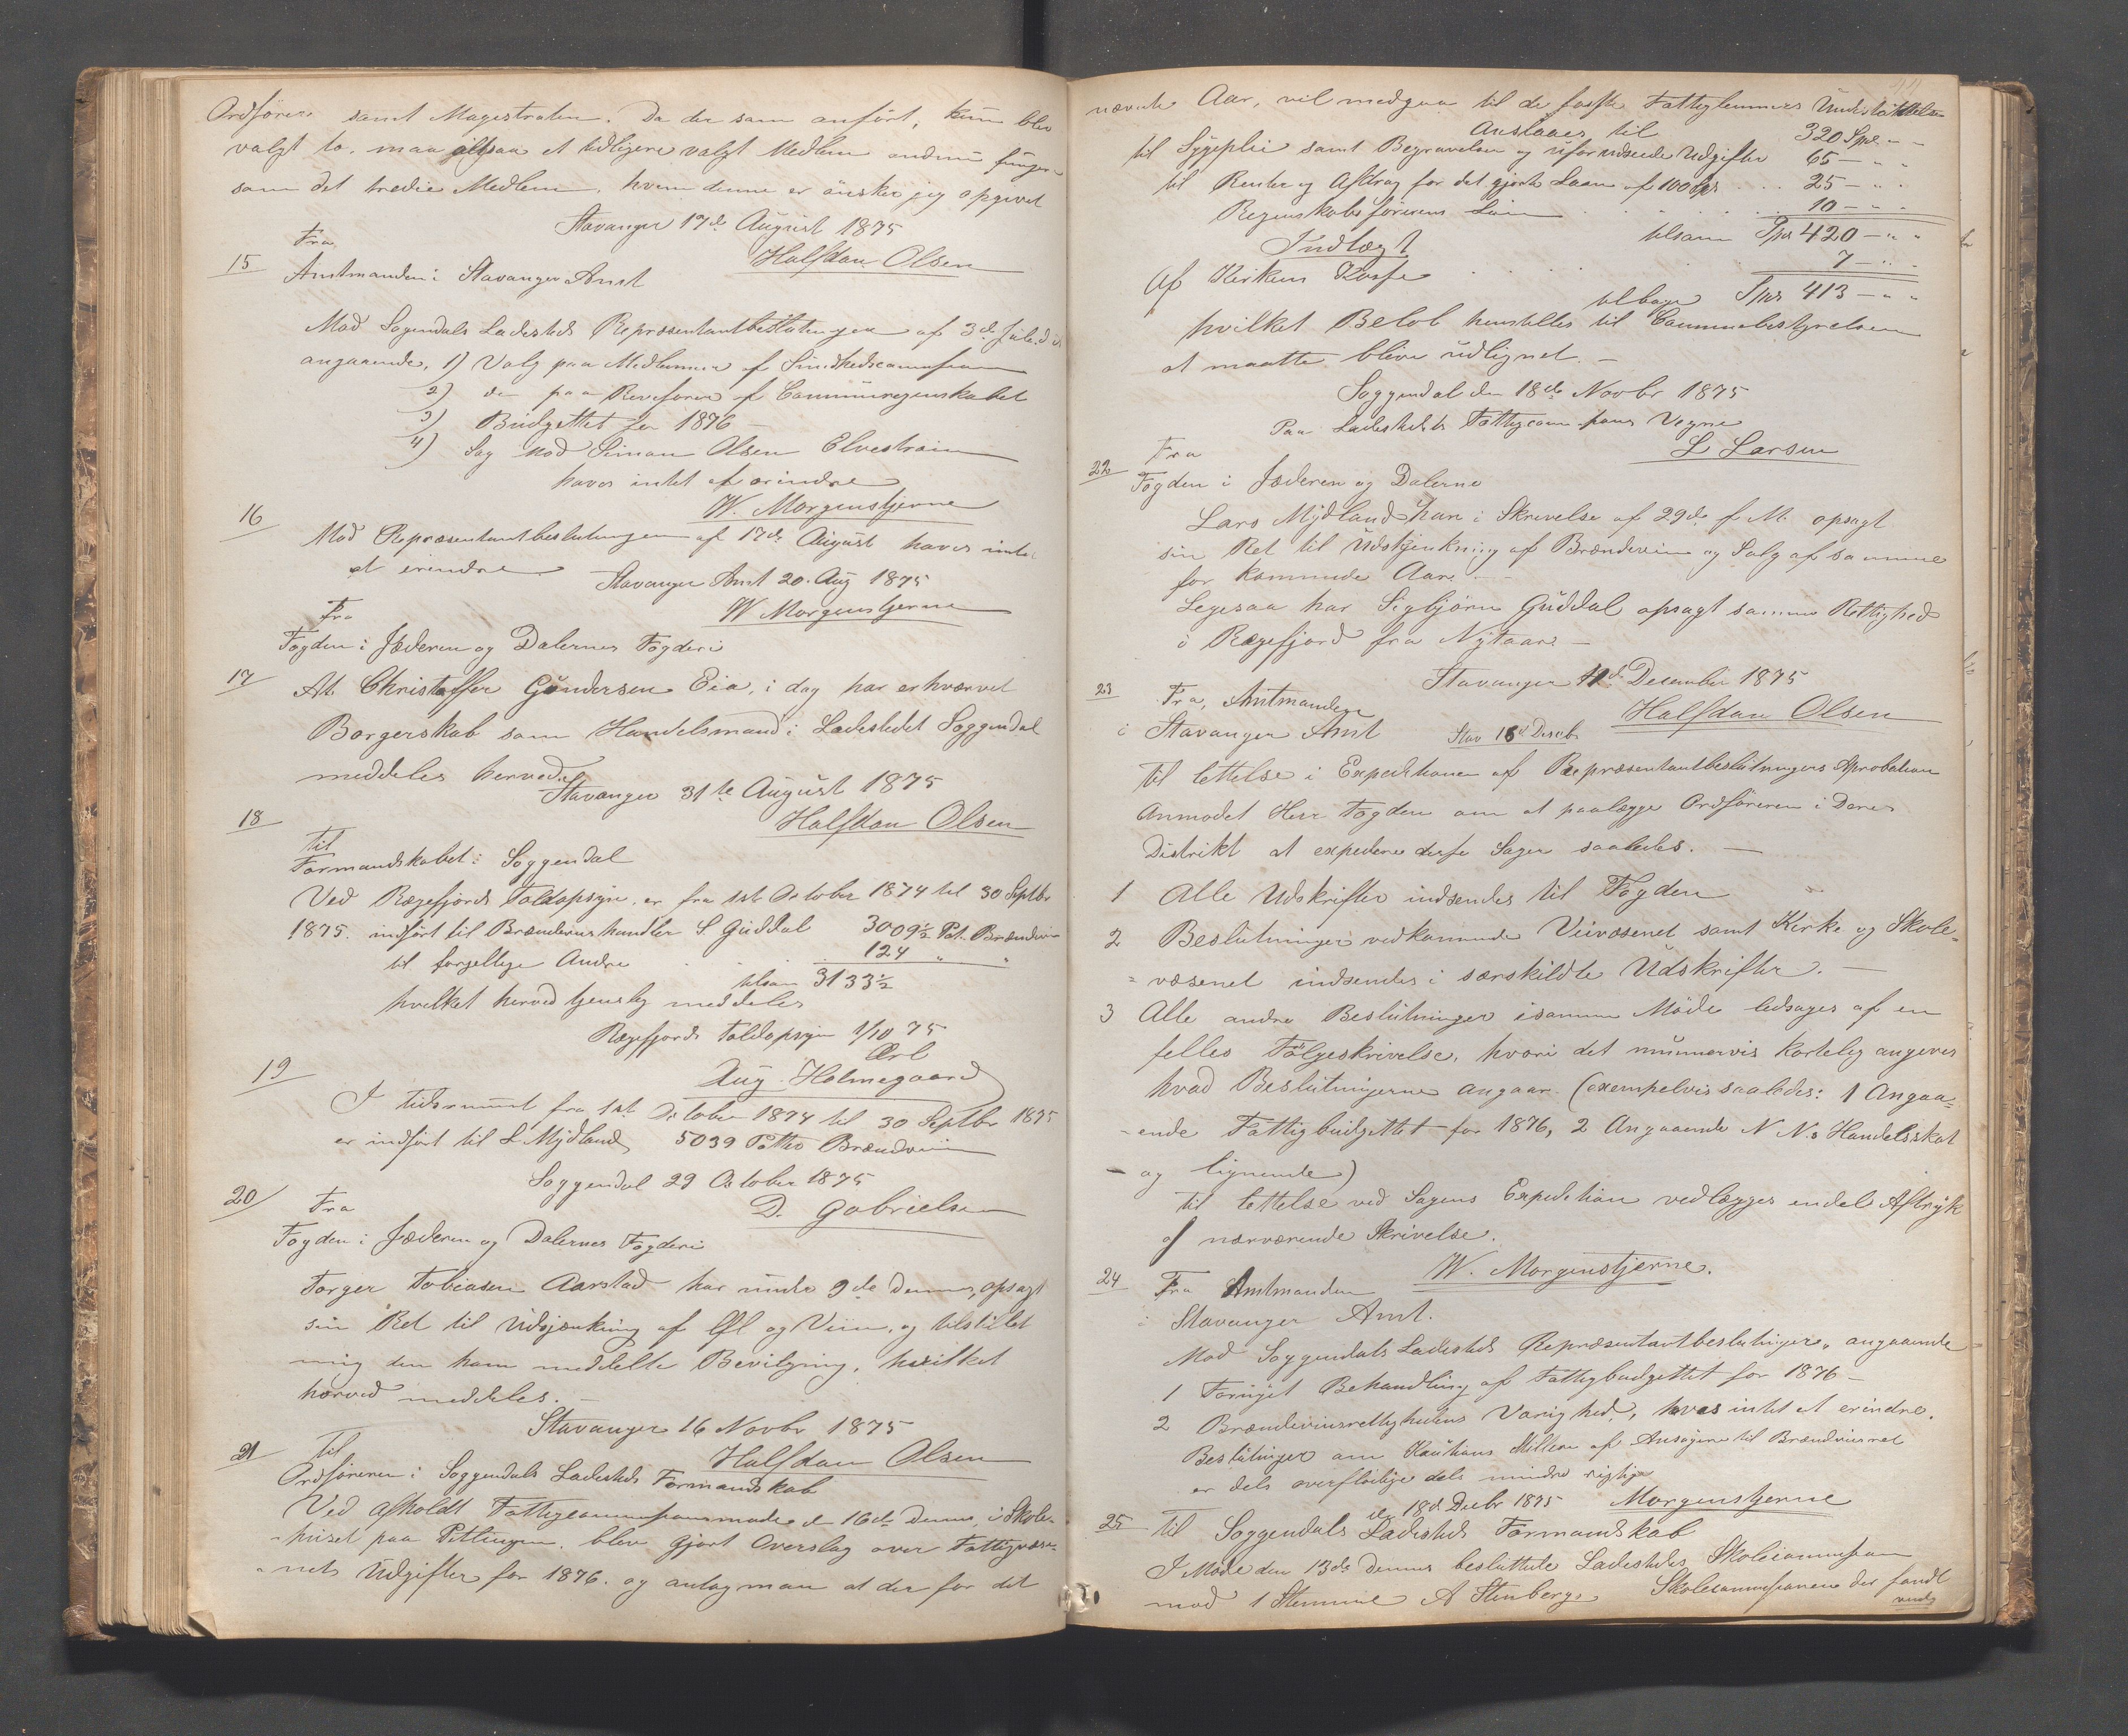 Ordförere samt Magestraten. Da der som anfört, kun blev
valgt to, maa altsaa et tidligere valgt Medlem endnu fungere
som det tredie Medlem, hvem denne er önsker jeg opgivet
Stavanger 17de August 1875
Halfdan Olsen
Fra
15 Amtmanden i Stavanger Amt
Mod Sogendals Ladesteds Repræsentantbeslutninger af 3de Juli d.A.
angaaende, 1) Valg paa Medlemmer af Sundhedscommissionen
2) do paa Revisorer af Communeregnskabet
3) Budgettet for 1876 —
4) Sag mod Simon Olsen Elvestrøm
haves intet at erindre
W. Morgenstjerne
16 Mod Repræsentantbeslutningen af 17de August haves intet
at erindre Stavanger Amt 20. Aug 1875
W Morgenstjerne
Fra
Fogden i Jæderen og Dalernes Fogderi
17 At Christoffer Gundersen Eia, i dag har erhvervet
Borgerskab som Handelsmand i Ladestedet Soggendal
meddeles herved.
Stavanger 31te August 1875
Halfdan Olsen
18 Til
Formandskabet i Soggendal
Ved Rægefjords Toldopsyn, er fra 1ste October 1874 til 30 Septbr
1875. indfört til Brændevinshandler S Guddal 3009½ Pot. Brændevin
til forskjellige Andre . . . 124 " "
tilsam 3133½
hvilket herved tjenstlig meddeles
Rægefjords Toldopsyn 1/10 75
Ærb
Aug. Holmegaard
19 I tidsrummet fra 1ste October 1874 til 30 Septbr 1875
er indfört til L Mydland 5039 Potter Brændeviin
Soggendal 29 October 1875
D. Gabrielsen
20 Fra
Fogden i Jæderen og Dalernes Fogderi
Torger Tobiasen Aarstad har under 9de dennes, opsagt
sin Ret til Udsjænkning af Øl og Viin, og tilstillet
mig den ham meddelte Bevilgning, hvilket
herved meddeles. —
Stavanger 16 Novbr 1875
Halfdan Olsen
21 Til
Ordföreren i Soggendals Ladesteds Formandskab
Ved afholdt Fattigcommissionsmøde d 16de dennes, i Skole-
-huset paa Pettingen, blev gjort Overslag over Fattigvæse-
-nets Udgifter for 1876. og antog man at der for det
nævnte Aar, vil medgaa til de faste Fattiglemmers Understøttelse
Anslaaes til 320 Spd - -
til Sygepleie samt Begravelser og uforudseede Udgifter 65 — " "
til Renter og Afdrag for det gjorte Laan af 100 Spd . . 25 — " "
Regnskabsförerens Lön . . . . . 10 — " "
tilsam Spd 420 — " "
Indtægt
Af Kirkens Kasse . . . . . 7 — " "
tilbage Spd 413 — " "
hvilket Beløb henstilles til Communebestyrelsen
at maatte blive udlignet. —
Soggendal den 18de Novbr 1875
Paa Ladestedets Fattigcommissions Vegne
L Larsen
22 Fra
Fogden i Jæderen og Dalerne
Lars Mydland har i Skrivelse af 29de f. M. opsagt
sin Ret til Udskjenkning af Brændeviin og Salg af samme
for kommende Aar. —
Ligesaa har Sigbjørn Guddal opsagt samme Rettighed
i Rægefjord fra Nytaar. —
Stavanger 11te December 1875
Halfdan Olsen
23 Fra, Amtmanden
i Stavanger Amt Stav 18de Decbr
Til lettelse i Expeditionen af Repræsentantbeslutningers Aprobation
Anmodet Herr Fogden om at paalægge Ordföreren i Deres
Distrikt at expedere disse Sager saaledes. —
1 Alle Udskrifter indsendes til Fogden
2 Beslutninger vedkommende Veivæsenet samt Kirke og Skole-
-væsenet indsendes i særskildte Udskrifter. —
3 Alle andre Beslutninger i samme Möde ledsages af en
felles Fölgeskrivelse, hvori det nummervis kortelig angives
hvad Beslutningerne angaar. (exempelvis saaledes: 1 Angaa-
-ende Fattigbudgettet for 1876, 2 Angaaende N N.s Handelsskat
- og lignende)
Til lettelse ved Sagens Expedition vedlægges endel Aftryk
af nærværende Skrivelse.
W. Morgenstjerne.
24 Fra Amtmanden
i Stavanger Amt.
Mod Soggendals Ladesteds Repræsentantbeslutninger, angaaende
1 Fornyet Behandling af Fattigbudgettet for 1876 —
2 Brændeviinsrettighedens Varighed, haves intet at erindre.
Beslutninger om Kautions Stillelse af Ansøgere til Brændeviinsret
er dels overflødige dels mindre rigtige
d. 18de Decbr 1875 Morgenstjerne
25 Til Soggendals Ladesteds Formandskab
I Møde den 13de dennes besluttede Ladestedets Skolecommission
mod 1 Stemme A Stenbergs Skolecommissionen der fandt
vend